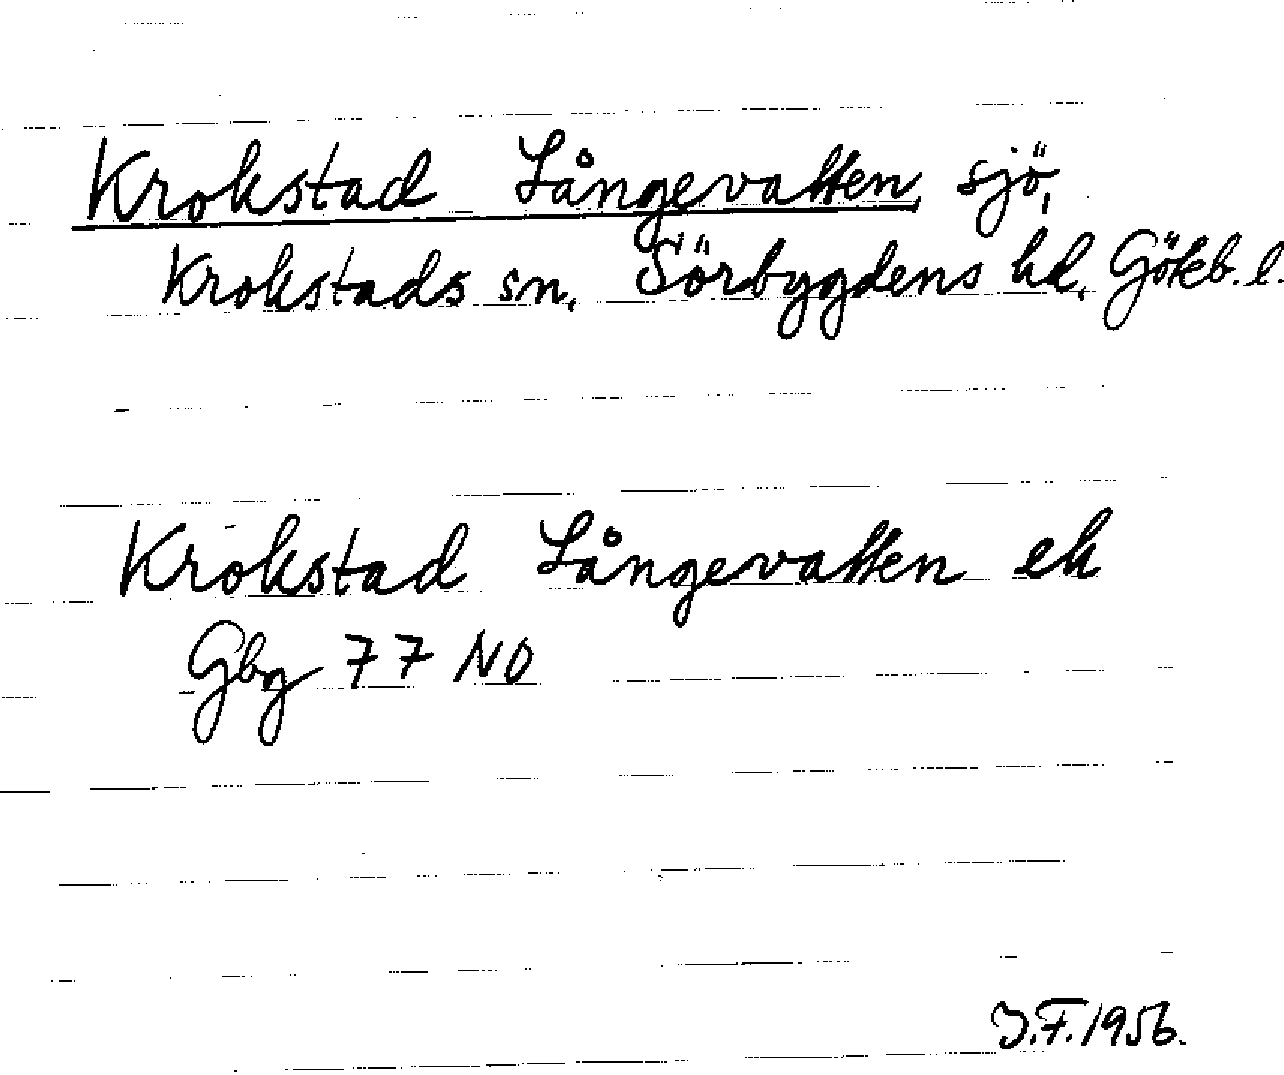 Krokstad Långevatten, sjö,
Krokstads sn. Sörbygdens hd. Gökb. l.
Krokstad Långevatten ek
Gbg 77 NO
J.F. 1956.